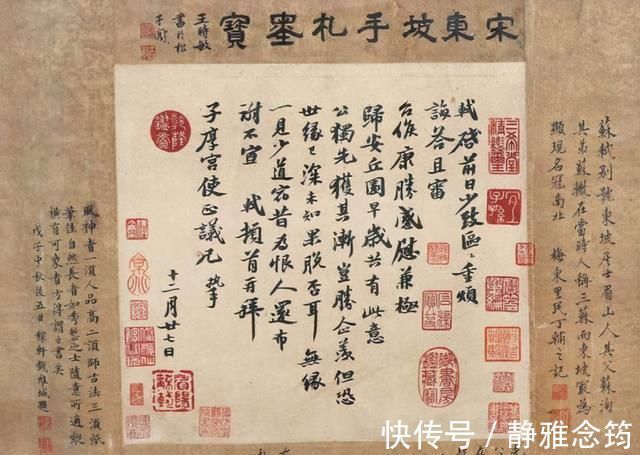 宋東坡手札墨寶
王時敏
書於松
蘇軾別號東坡居士眉山人其父蘇洵
其弟蘇轍在當時人稱三蘇而東坡最為
顯現名冠南北 梅東里民丁輔之記
軾啟前日少致區區重煩
誨答且審
台候康勝感慰兼極
歸安丘園早歲共有此意
公獨先獲其漸豈勝企羨但恐
世緣已深未知果脫否耳無緣
一見少道宿昔為恨人還布
謝不宣 軾頓首再拜
子厚宮使正議兄執事
十二月廿七日
風神者一須人品高二須師古法三須紙
筆佳自然長者如秀整之士隨意所適縱
橫有可象者方得謂之書矣
戊子中秋後五日 錢維城題
快传号／静雅念筠